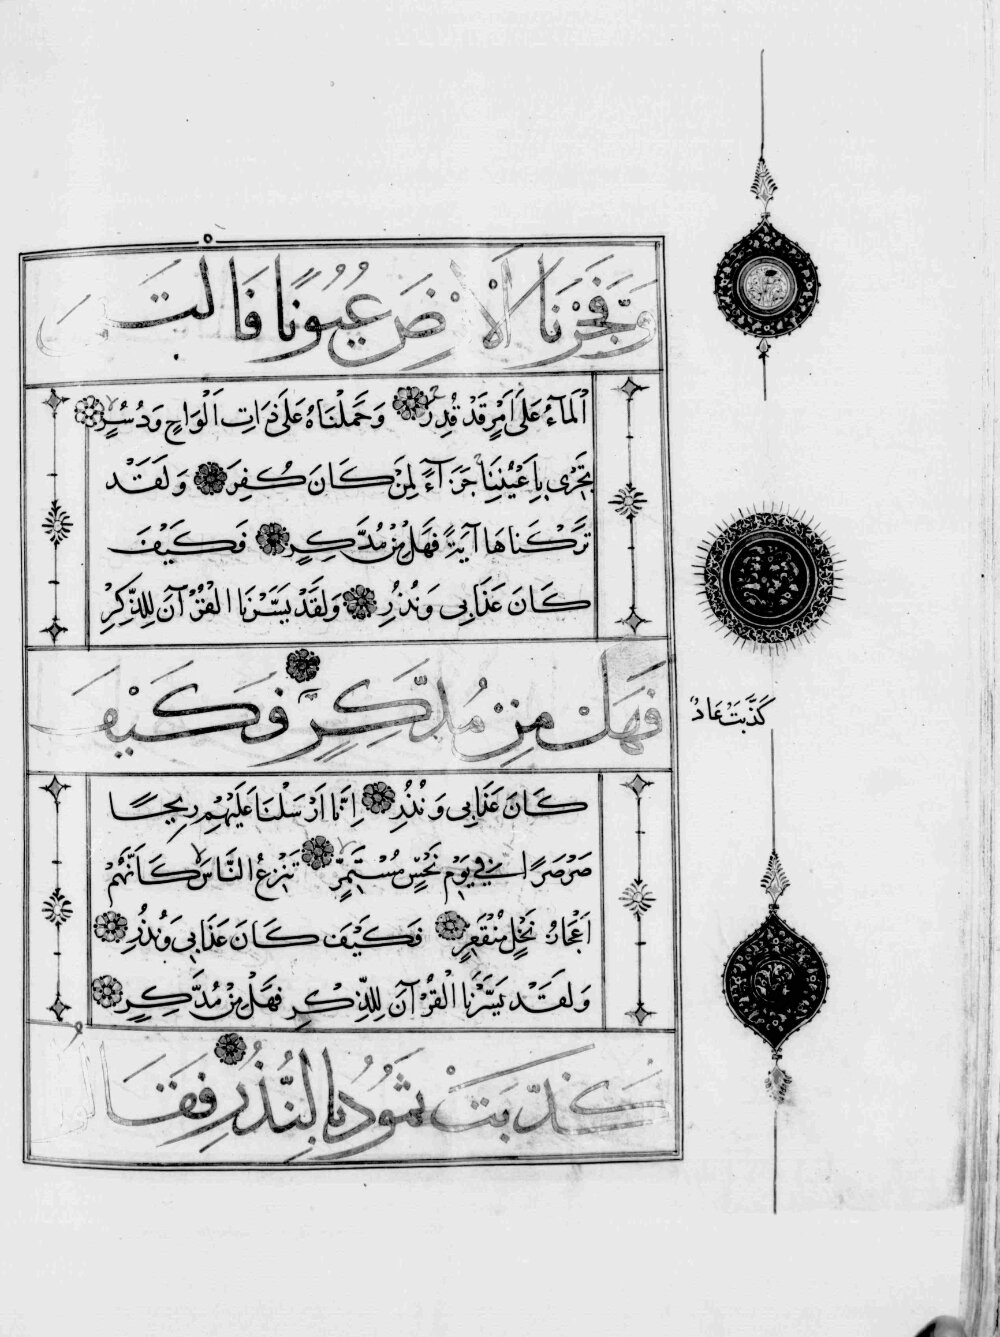 وَفَجَّرْنَا الْأَرْضَ عُيُونًا فَالْتَقَى
الْمَآءُ عَلَى اَمْرٍ قَدْ قُدِرَ وَحَمَلْنَاهُ عَلَى ذَاتِ اَلْوَاحٍ وَدُسُرٍ
تَجْرِي بِاَعْيُنِنَا جَزَآءً لِمَنْ كَانَ كُفِرَ وَلَقَدْ
تَرَكْنَاهَا آيَةً فَهَلْ مِنْ مُدَّكِرٍ فَكَيْفَ
كَانَ عَذَابِي وَنُذُرِ وَلَقَدْ يَسَّرْنَا الْقُرْآنَ لِلذِّكْرِ
فَهَلْ مِنْ مُدَّكِرٍ
كَذَّبَتْ عَادٌ
فَكَيْفَ
كَانَ عَذَابِي وَنُذُرِ اِنَّا اَرْسَلْنَا عَلَيْهِمْ رِيحًا
صَرْصَرًا فِي يَوْمِ نَحْسٍ مُسْتَمِرٍّ تَنْزِعُ النَّاسَ كَاَنَّهُمْ
اَعْجَازُ نَخْلٍ مُنْقَعِرٍ فَكَيْفَ كَانَ عَذَابِي وَنُذُرِ
وَلَقَدْ يَسَّرْنَا الْقُرْآنَ لِلذِّكْرِ فَهَلْ مِنْ مُدَّكِرٍ
كَذَّبَتْ ثَمُودُ بِالنُّذُرِ فَقَالُوا